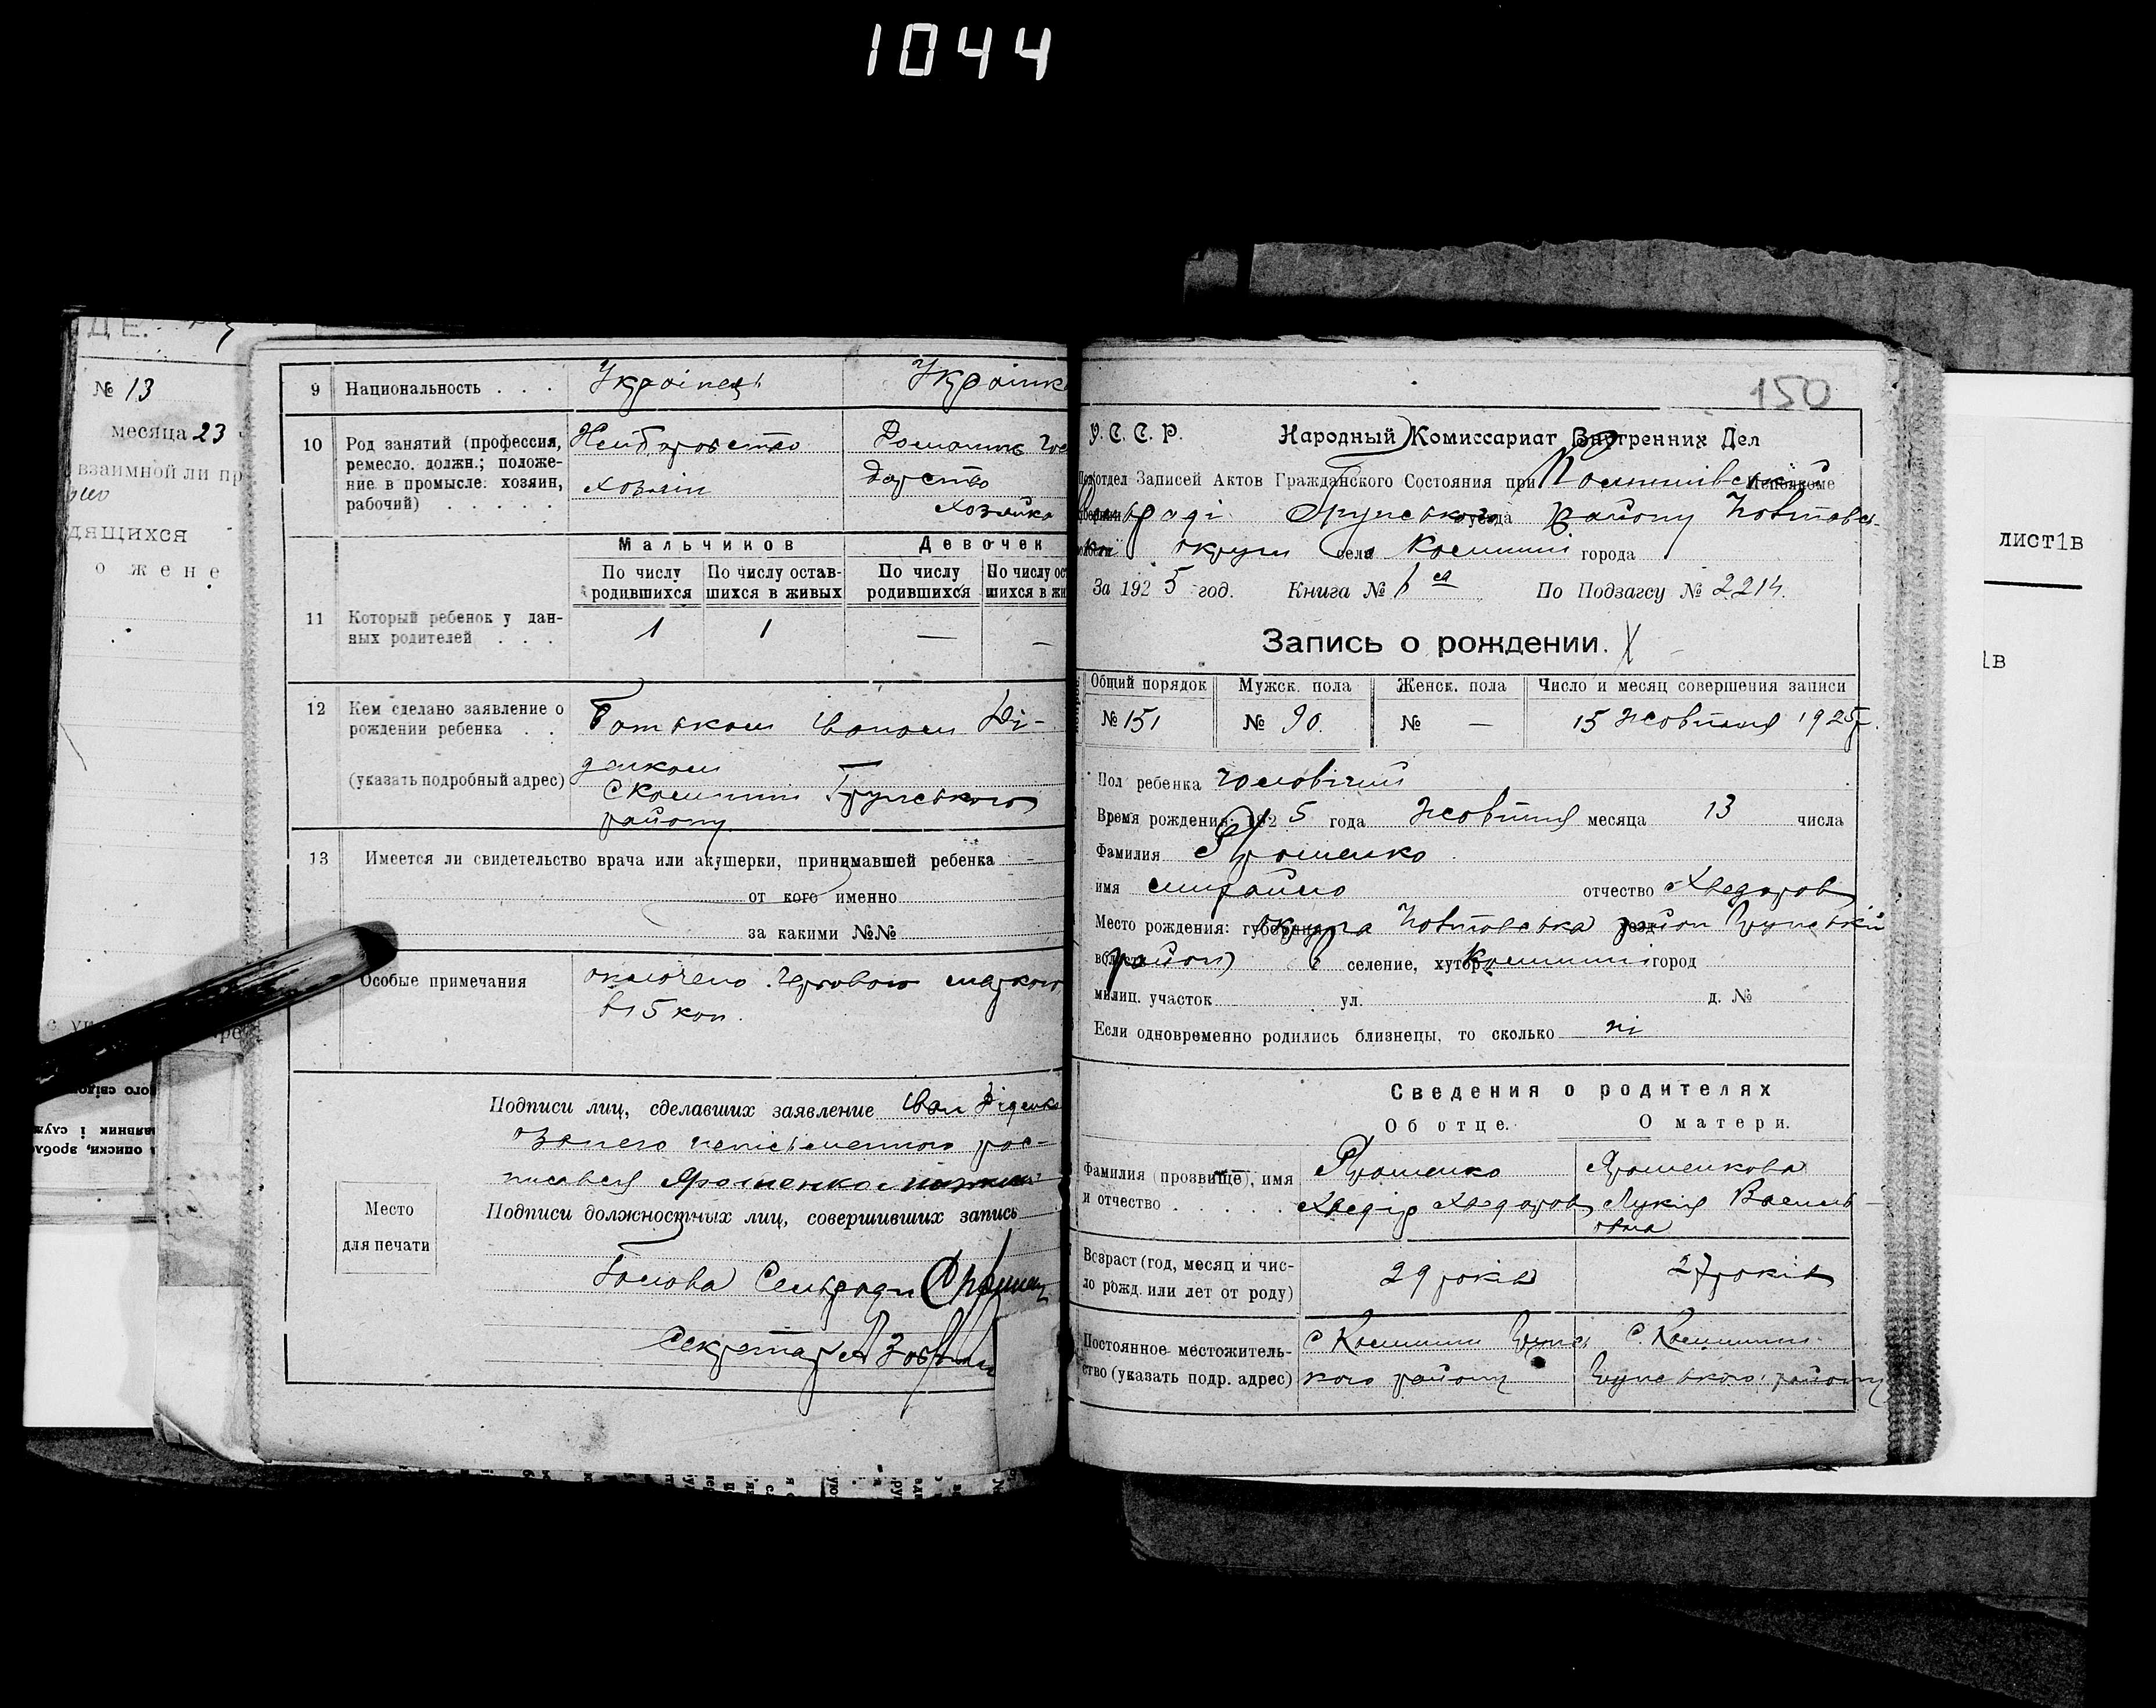 1044
ДЕ.
№ 13
месяца 23
взаимной ли пр
дящихся
о жене
9 Национальность . . . Українець Українк
10 Род занятий (профессия, ремесло, должн.; положение в промысле: хозяин, рабочий) . . . . .
Хліборобство
хозяїн
Домашнє гос
дарство
хозяйка
Мальчиков Девочек
По числу родившихся По числу оставшихся в живых По числу родившихся По числу ос шихся в жи
11 Который ребенок у данных родителей . . . 1 1 — —
12 Кем сделано заявление о рождении ребенка . .
(указать подробный адрес)
Батьком Іваном Ді-
денком
району
13 Имеется ли свидетельство врача или акушерки, принимавшей ребенка -
от кого именно
за какими №№
Особые примечания
оплочено гербовою маркою
в 15 коп.
Подписи лиц, сделавших заявление Іван Діденко
за нього неписьменного рос-
писався Ярошенко
Подписи должностных лиц, совершивших запись
Место
для печати
Голова Сельради
Секретар
150
У. С. С. Р. Народный Комиссариат Внутренних Дел
Подотдел Записей Актов Гражданского Состояния при
сельраді уезда Району Полтавсь-
кої округи села города
За 1925 год. Книга № 1ая По Подзагсу № 2214.
Запись о рождении. X
Общий порядок Мужск. пола Женск. пола Число и месяц совершения записи
№ 151 № 90. № — 15 жовтня 1925р.
Пол ребенка чоловічий
Время рождения: 1925 года Жовтня месяца 13 числа
Фамилия Ярошенко
имя Михайло отчество Хведоров
Место рождения: округа Полтавська район
волость район селение, хутор город
милиц. участок ул. д. №
Если одновременно родились близнецы, то сколько ні
Сведения о родителях
Об отце. О матери.
Фамилия (прозвище), имя и отчество . . . . .
Ярошенко
Хведір Хведоров
Ярошенкова
Лукія Василь-
овна
Возраст (год, месяц и число рожд. или лет от роду) 29 років 27 років
Постоянное местожительство (указать подр. адрес)
кого району
району
лист1в
1в